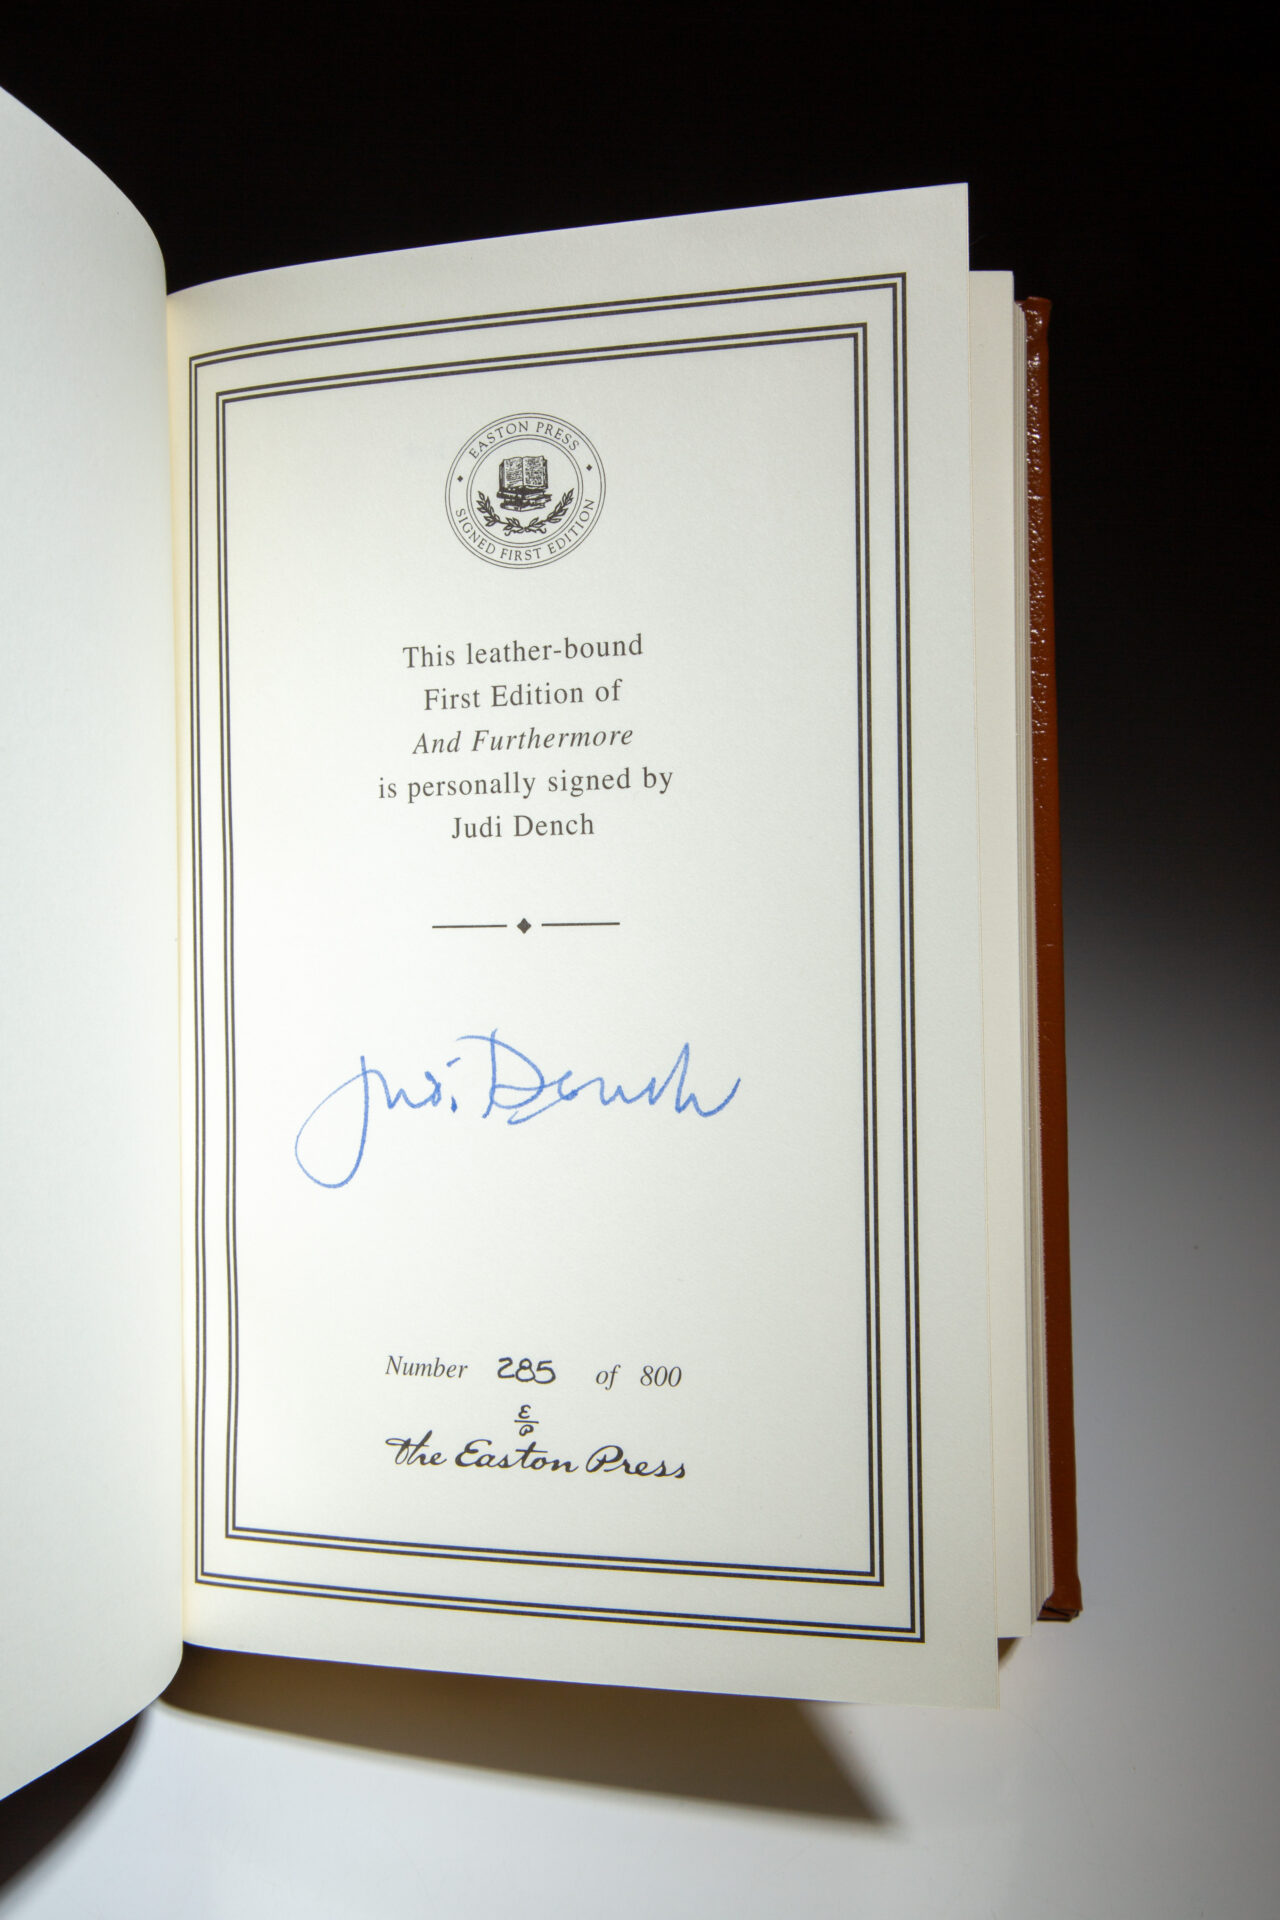 EASTON PRESS
SIGNED FIRST EDITION
This leather-bound
First Edition of
And Furthermore
is personally signed by
Judi Dench
Judi Dench
Number 285 of 800
E
P
The Easton Press